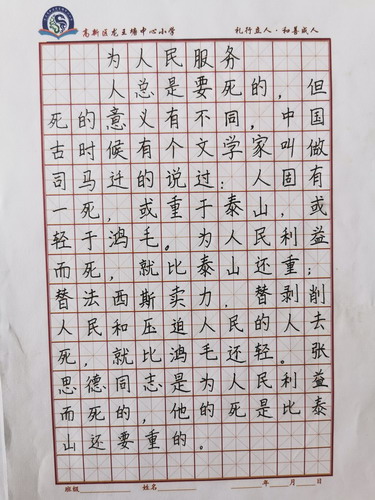 高新区龙王塘中心小学 礼行立人·和善成人
为人民服务
人总是要死的，但
死的意义有不同，中国
古时候有个文学家叫做
司马迁的说过：人固有
一死，或重于泰山，或
轻于鸿毛。为人民利益
而死，就比泰山还重；
替法西斯卖力，替剥削
人民和压迫人民的人去
死，就比鸿毛还轻。张
思德同志是为人民利益
而死的，他的死是比泰
山还要重的。
班级 姓名 年 月 日